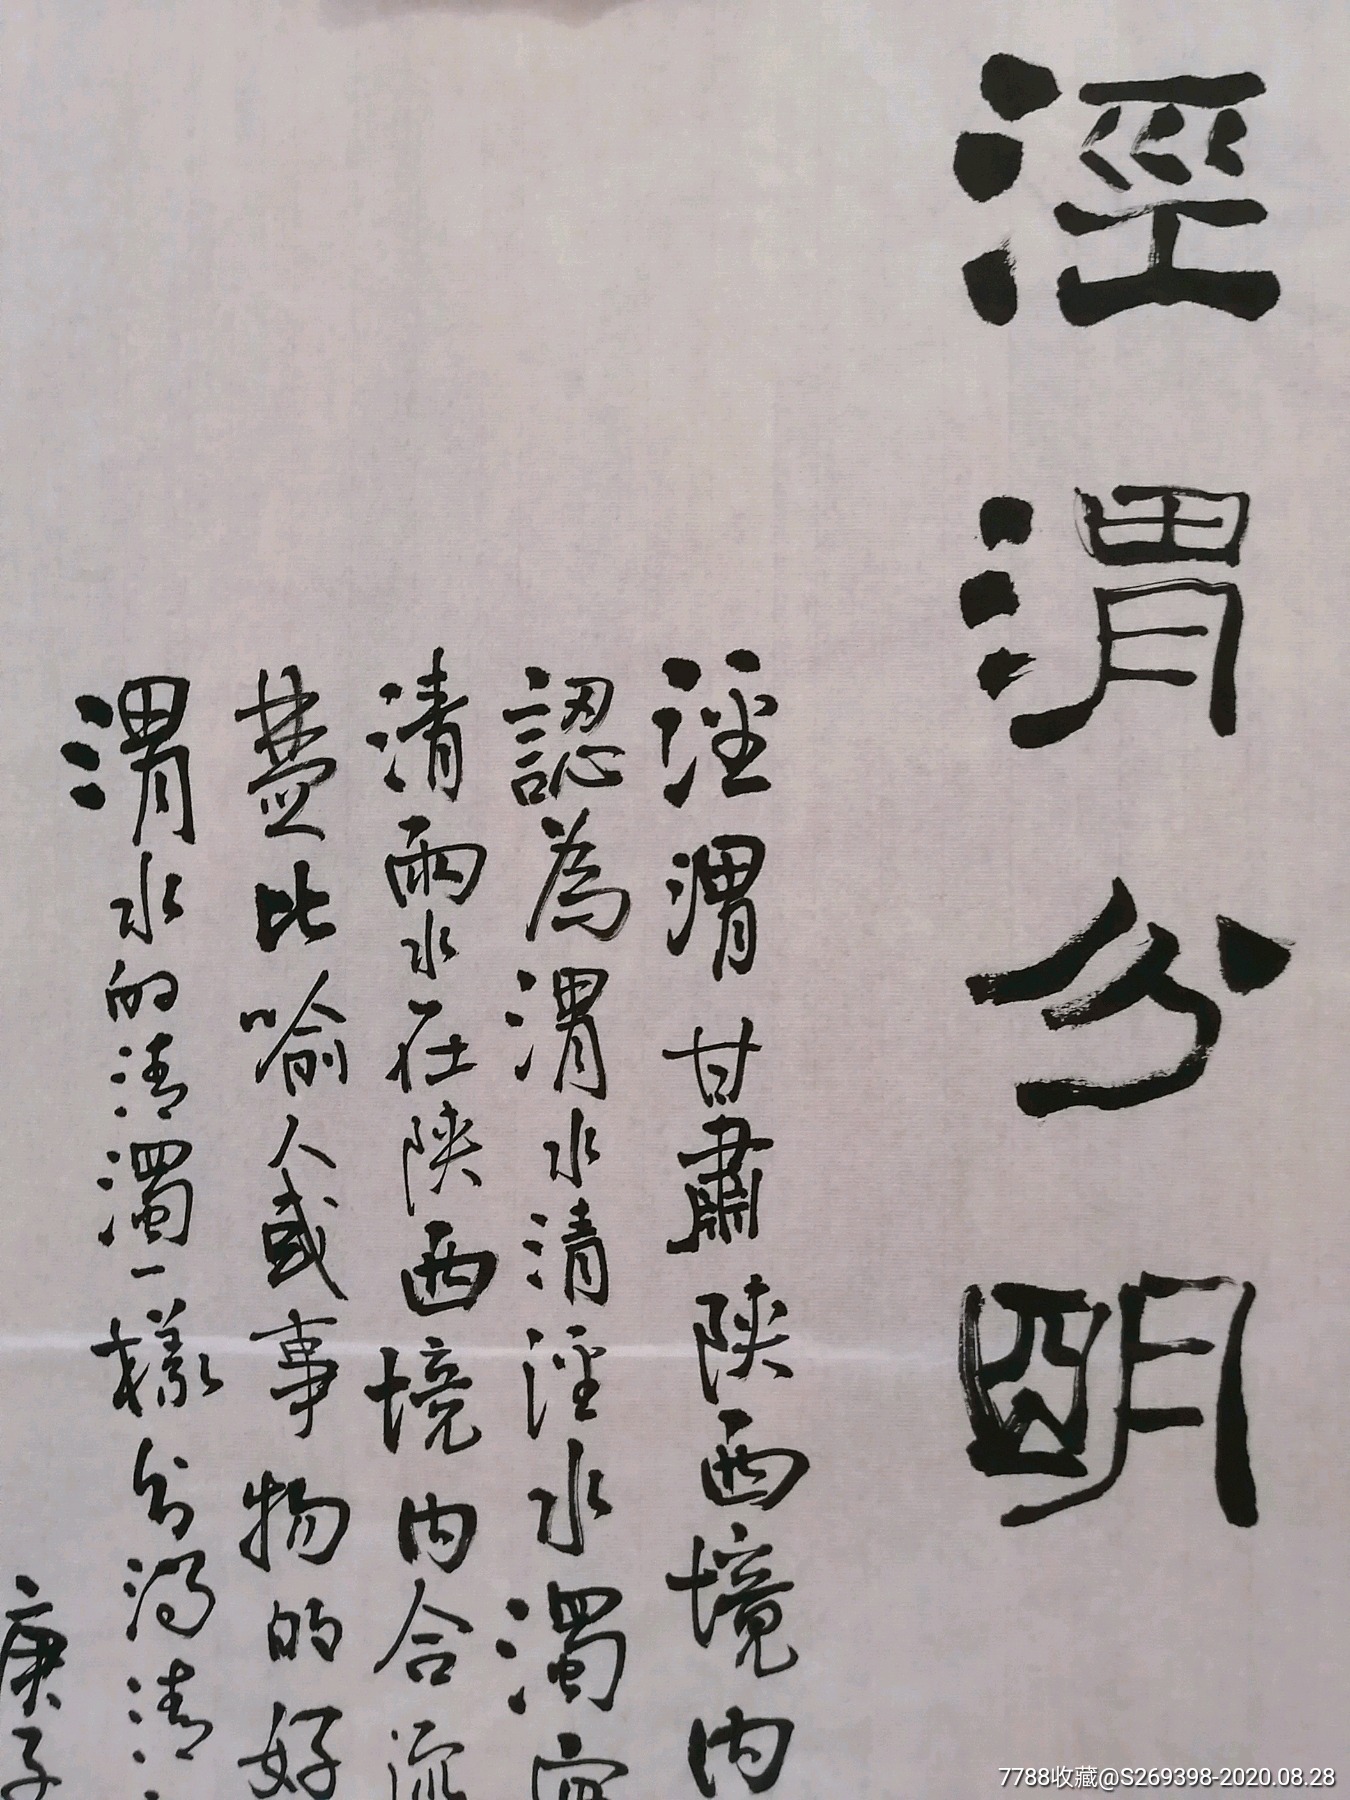 涇渭分明
涇渭甘肅陝西境內
認為渭水清涇水濁實
清兩水在陝西境內合流
比喻人或事物的好
渭水的清濁一樣分得清
庚子
7788收藏@S269398-2020.08.28